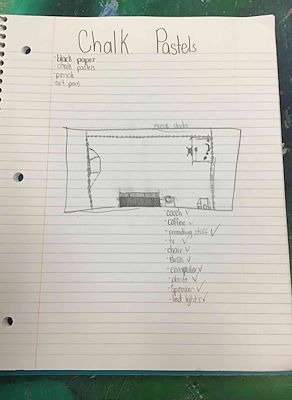 Chalk Pastels
- black paper
- chalk pastels
- pencil
music studio
- couch ✓
- coffee ✓
- recording stuff ✓
- tv ✓
- chair ✓
- desk ✓
- computer ✓
- speaker ✓
- led lights ✓